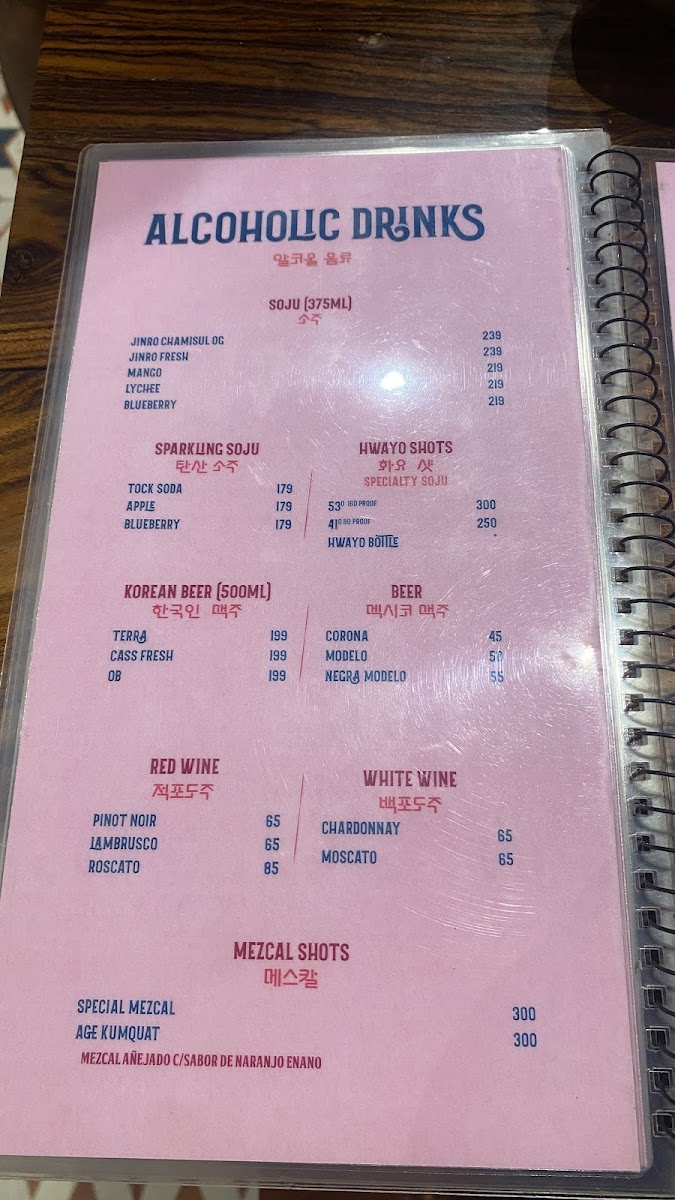 ALCOHOLIC DRINKS
알코올 음류
SOJU (375ML)
소주
JINRO CHAMISUL OG 239
JINRO FRESH 239
MANGO 219
LYCHEE 219
BLUEBERRY 219
SPARKLING SOJU
탄산 소주
TOCK SODA 179
APPLE 179
BLUEBERRY 179
HWAYO SHOTS
화요 샷
SPECIALTY SOJU
53º 160 PROOF 300
41º 80 PROOF 250
HWAYO BOTTLE
KOREAN BEER (500ML)
한국인 맥주
TERRA 199
CASS FRESH 199
OB 199
BEER
멕시코 맥주
CORONA 45
MODELO
NEGRA MODELO 55
RED WINE
적포도주
PINOT NOIR 65
LAMBRUSCO 65
ROSCATO 85
WHITE WINE
백포도주
CHARDONNAY 65
MOSCATO 65
MEZCAL SHOTS
메스칼
SPECIAL MEZCAL 300
AGE KUMQUAT 300
MEZCAL AÑEJADO C/SABOR DE NARANJO ENANO